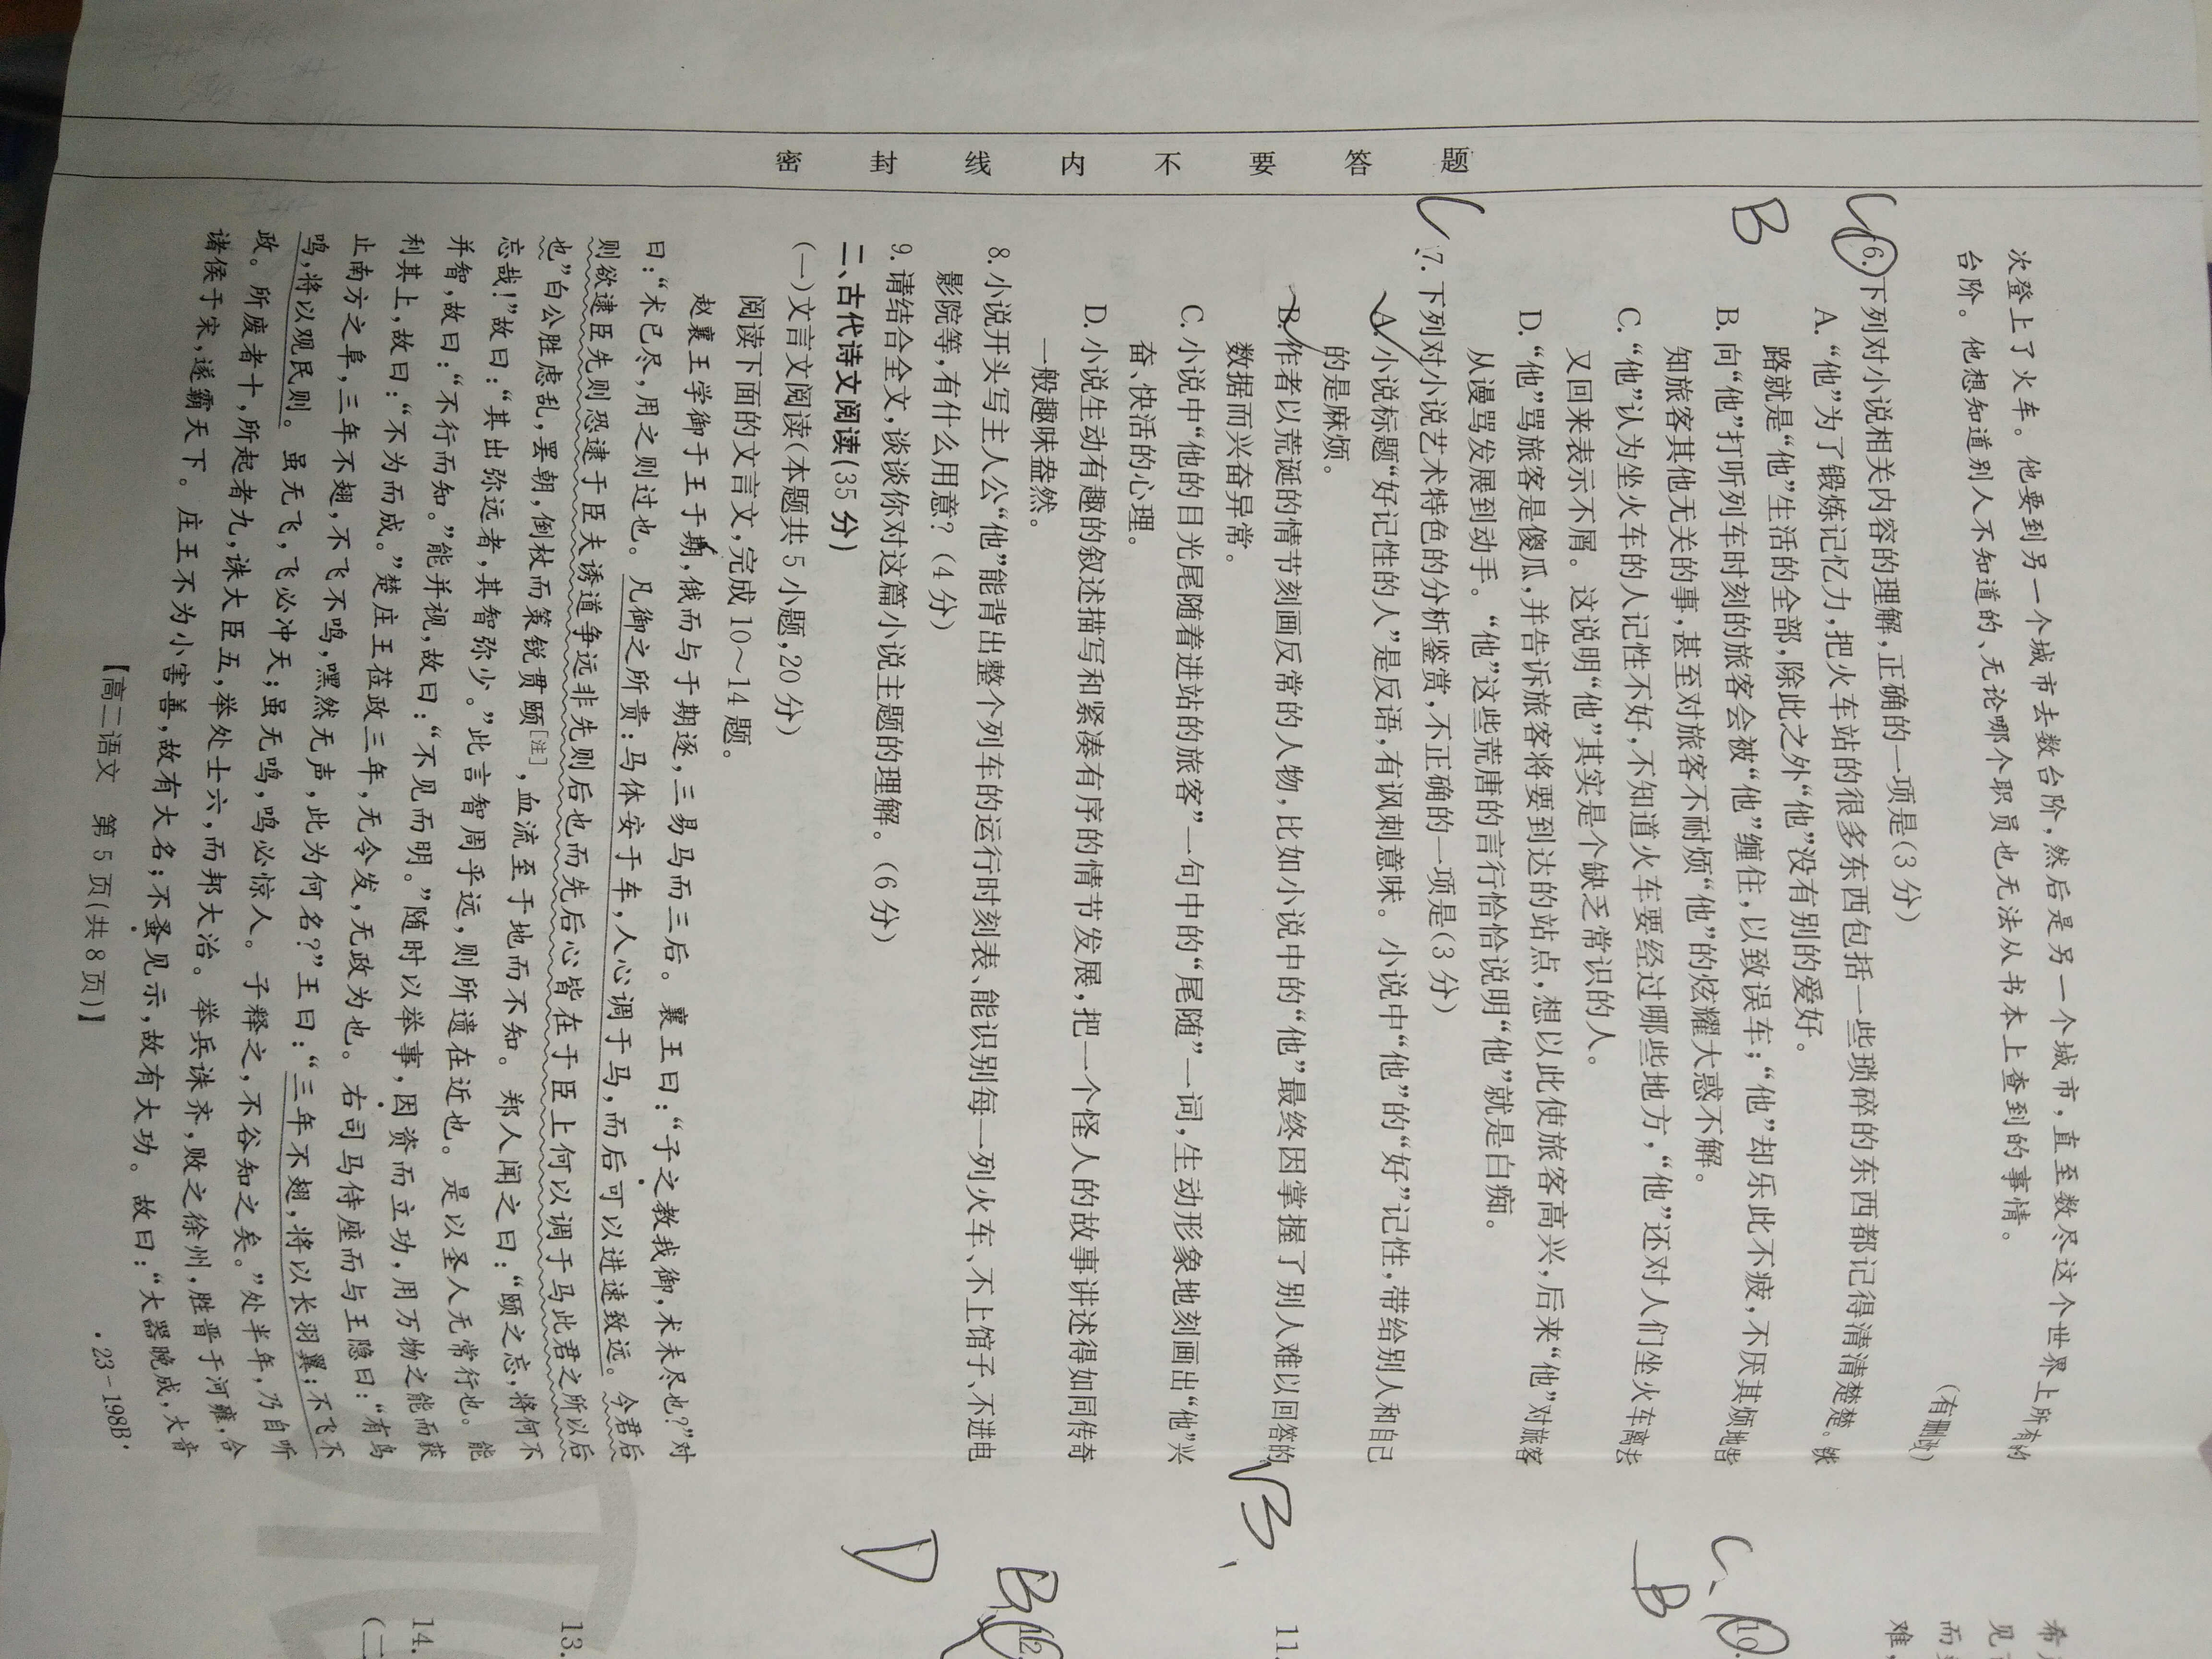 密 封 线 内 不 要 答 题
次登上了火车。他要到另一个城市去数台阶，然后是另一个城市，直至数尽这个世界上所有的
台阶。他想知道别人不知道的、无论哪个职员也无法从书本上查到的事情。
（有删改）
6. 下列对小说相关内容的理解，正确的一项是（3 分）
A. “他”为了锻炼记忆力，把火车站的很多东西包括一些琐碎的东西都记得清清楚楚。铁
路就是“他”生活的全部，除此之外“他”没有别的爱好。
B
B. 向“他”打听列车时刻的旅客会被“他”缠住，以致误车；“他”却乐此不疲，不厌其烦地告
知旅客其他无关的事，甚至对旅客不耐烦“他”的炫耀大惑不解。
C. “他”认为坐火车的人记性不好，不知道火车要经过哪些地方，“他”还对人们坐火车离去
又回来表示不屑。这说明“他”其实是个缺乏常识的人。
D. “他”骂旅客是傻瓜，并告诉旅客将要到达的站点，想以此使旅客高兴，后来“他”对旅客
从谩骂发展到动手。“他”这些荒唐的言行恰恰说明“他”就是白痴。
7. 下列对小说艺术特色的分析鉴赏，不正确的一项是（3 分）
A. 小说标题“好记性的人”是反语，有讽刺意味。小说中“他”的“好”记性，带给别人和自己
的是麻烦。
B. 作者以荒诞的情节刻画反常的人物，比如小说中的“他”最终因掌握了别人难以回答的
数据而兴奋异常。
C. 小说中“他的目光尾随着进站的旅客”一句中的“尾随”一词，生动形象地刻画出“他”兴
奋、快活的心理。
D. 小说生动有趣的叙述描写和紧凑有序的情节发展，把一个怪人的故事讲述得如同传奇
一般趣味盎然。
8. 小说开头写主人公“他”能背出整个列车的运行时刻表、能识别每一列火车、不上馆子、不进电
影院等，有什么用意？（4 分）
9. 请结合全文，谈谈你对这篇小说主题的理解。（6 分）
二、古代诗文阅读（35 分）
（一）文言文阅读（本题共 5 小题，20 分）
阅读下面的文言文，完成 10～14 题。
赵襄王学御于王于期，俄而与于期逐，三易马而三后。襄王曰：“子之教我御，术未尽也？”对
曰：“术已尽，用之则过也。凡御之所贵：马体安于车，人心调于马，而后可以进速致远。今君后
则欲逮臣先则恐逮于臣夫诱道争远非先则后也而先后心皆在于臣上何以调于马此君之所以后
也”白公胜虑乱，罢朝，倒杖而策锐贯颐[注]，血流至于地而不知。郑人闻之曰：“颐之忘，将何不
忘哉！”故曰：“其出弥远者，其智弥少。”此言智周乎远，则所遗在近也。是以圣人无常行也。能
并智，故曰：“不行而知。”能并视，故曰：“不见而明。”随时以举事，因资而立功，用万物之能而获
利其上，故曰：“不为而成。”楚庄王莅政三年，无令发，无政为也。右司马侍座而与王隐曰：“有鸟
止南方之阜，三年不翅，不飞不鸣，嘿然无声，此为何名？”王曰：“三年不翅，将以长羽翼；不飞不
鸣，将以观民则。虽无飞，飞必冲天；虽无鸣，鸣必惊人。子释之，不谷知之矣。”处半年，乃自听
政。所废者十，所起者九，诛大臣五，举处士六，而邦大治。举兵诛齐，败之徐州，胜晋于河雍，合
诸侯于宋，遂霸天下。庄王不为小害善，故有大名；不蚤见示，故有大功。故曰：“大器晚成，大音
【高二语文　第 5 页（共 8 页）】
·23－198B·
希
见
而
难，
C、
10.
B
11.
B、
12.
B
D
13.
14.
（二